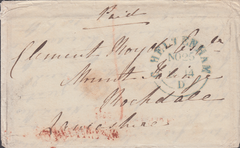 Paid
Clement Royds Esqr
Mount Falinge
Rochdale
Lancashire
CHELTENHAM